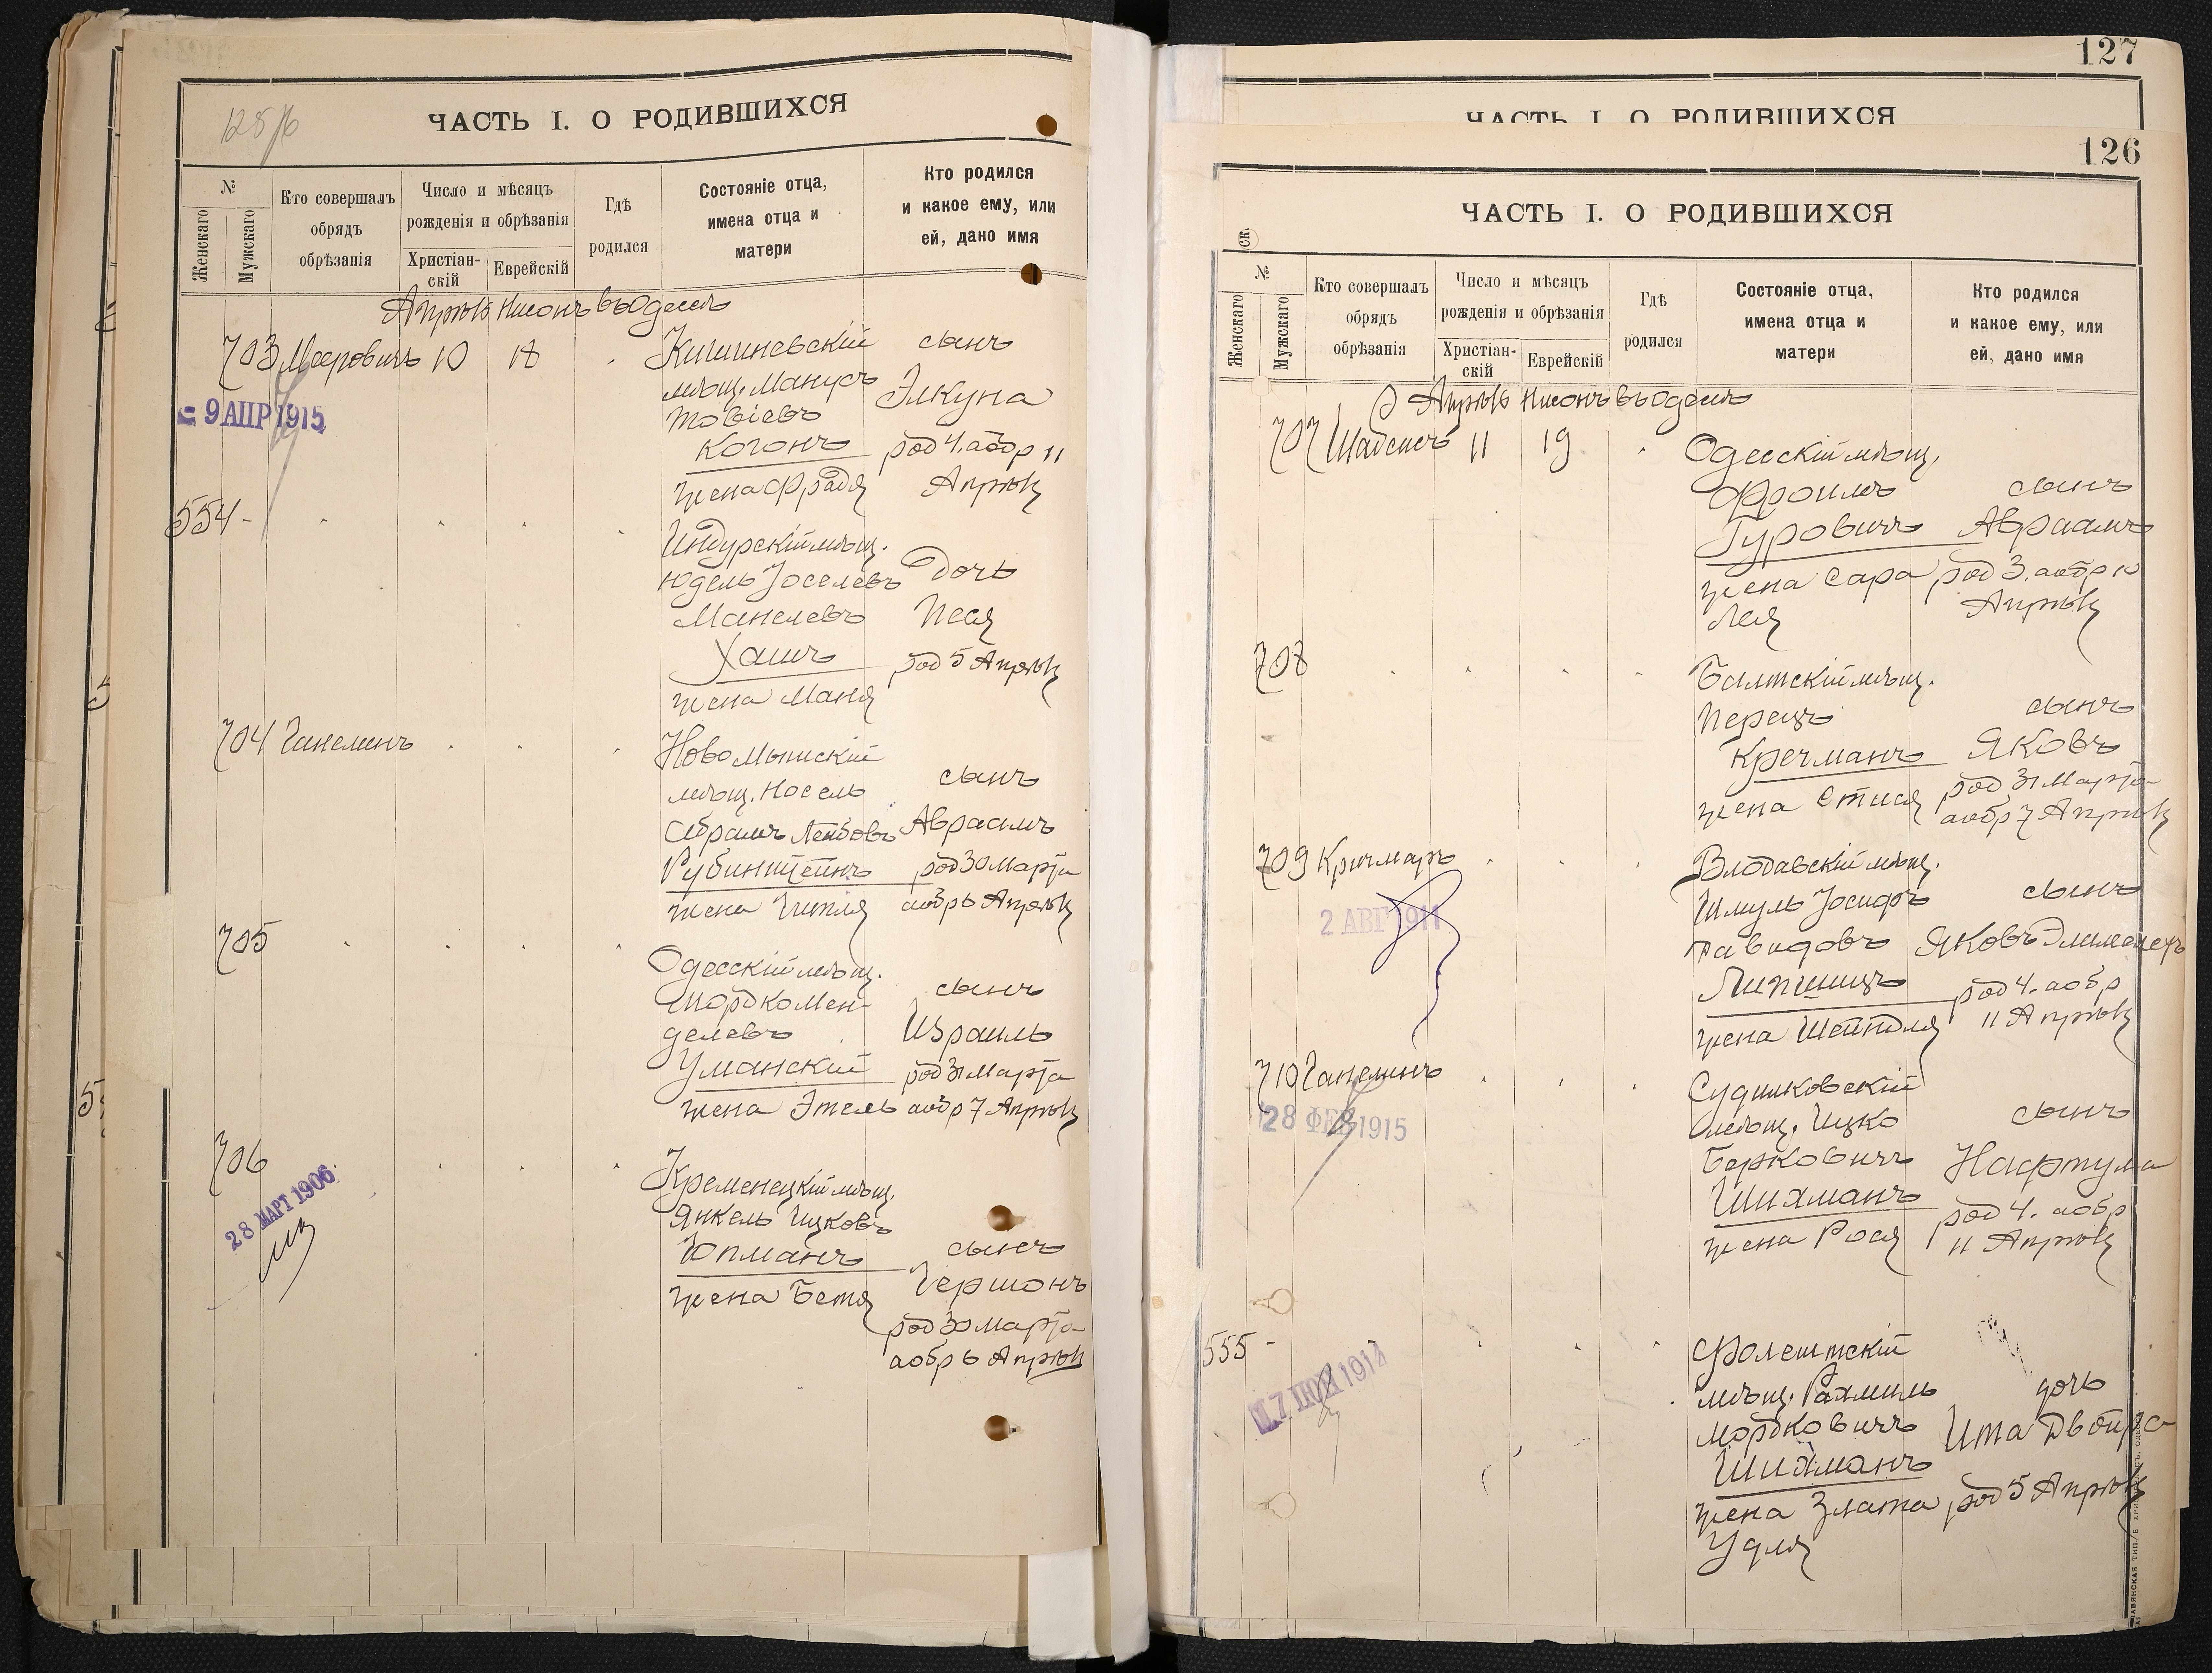 125/б
ЧАСТЬ I. О РОДИВШИХСЯ
№
Женскаго
Мужскаго
Кто совершалъ
обрядъ
обрѣзанія
Число и мѣсяцъ
рожденія и обрѣзанія
Христіан-
скій
Еврейскій
Гдѣ
родился
Состояніе отца,
имена отца и
матери
Кто родился
и какое ему, или
ей, дано имя
Апрѣль Нисонъ въ Одессѣ
703 Мееровичъ 10 18
Кишиневскій
мѣщ. Манусъ
Товіевъ
Когонъ
жена Фрадя
сынъ
Элкуна
род 4. а обр 11
Апрѣля
9 АПР 1915
554 -
Индурскій мѣщ.
Юдель Іоселевъ
Манелевъ
Хаитъ
жена Маня
дочь
Песя
род 5 Апрѣля
704 Ганелинъ
Ново Мышскій
мѣщ. Носель
Абрамъ Лейбовъ
Рубинштейнъ
жена Гитля
сынъ
Авраамъ
род 30 Марта
а обр 6 Апрѣля
705
Одесскій мѣщ.
Мордко Мен-
делевъ
Уманскій
жена Этель
сынъ
Израиль
род 31 Марта
а обр 7 Апрѣля
706
28 МАРТ 1906
Кременецкій мѣщ.
Янкель Ицковъ
Юпманъ
жена Бетя
сынъ
Гершонъ
род 30 Марта
а обр 6 Апрѣля
127
ЧАСТЬ I. О РОДИВШИХСЯ
126
ЧАСТЬ I. О РОДИВШИХСЯ
№
Женскаго
Мужскаго
Кто совершалъ
обрядъ
обрѣзанія
Число и мѣсяцъ
рожденія и обрѣзанія
Христіан-
скій
Еврейскій
Гдѣ
родился
Состояніе отца,
имена отца и
матери
Кто родился
и какое ему, или
ей, дано имя
Апрѣль Нисонъ въ Одессѣ
707 Шабсисъ 11 19
Одесскій мѣщ.
Фроимъ
Гуровичъ
жена Сара
Лея
сынъ
Авраамъ
род 3. а обр 10
Апрѣля
708
Балтскій мѣщ.
Перецъ
Кречманъ
жена Етися
сынъ
Яковъ
род 31 Марта
а обр 7 Апрѣля
709 Кричмаръ
2 АВГ 1911
Влодавскій мѣщ.
Шмуль Іосифъ
Давидовъ
Липшицъ
жена Шейндля
сынъ
Яковъ Элимелехъ
род 4. а обр
11 Апрѣля
710 Ганелинъ
28 ФЕВ 1915
Судилковскій
мѣщ. Ицко
Берковичъ
Шихманъ
жена Рося
сынъ
Нафтула
род 4. а обр
11 Апрѣля
555 -
Фолештскій
мѣщ. Рахмиль
Мордковичъ
Шихманъ
жена Злата
Удля
дочь
Ита Двойра
род 5 Апрѣля